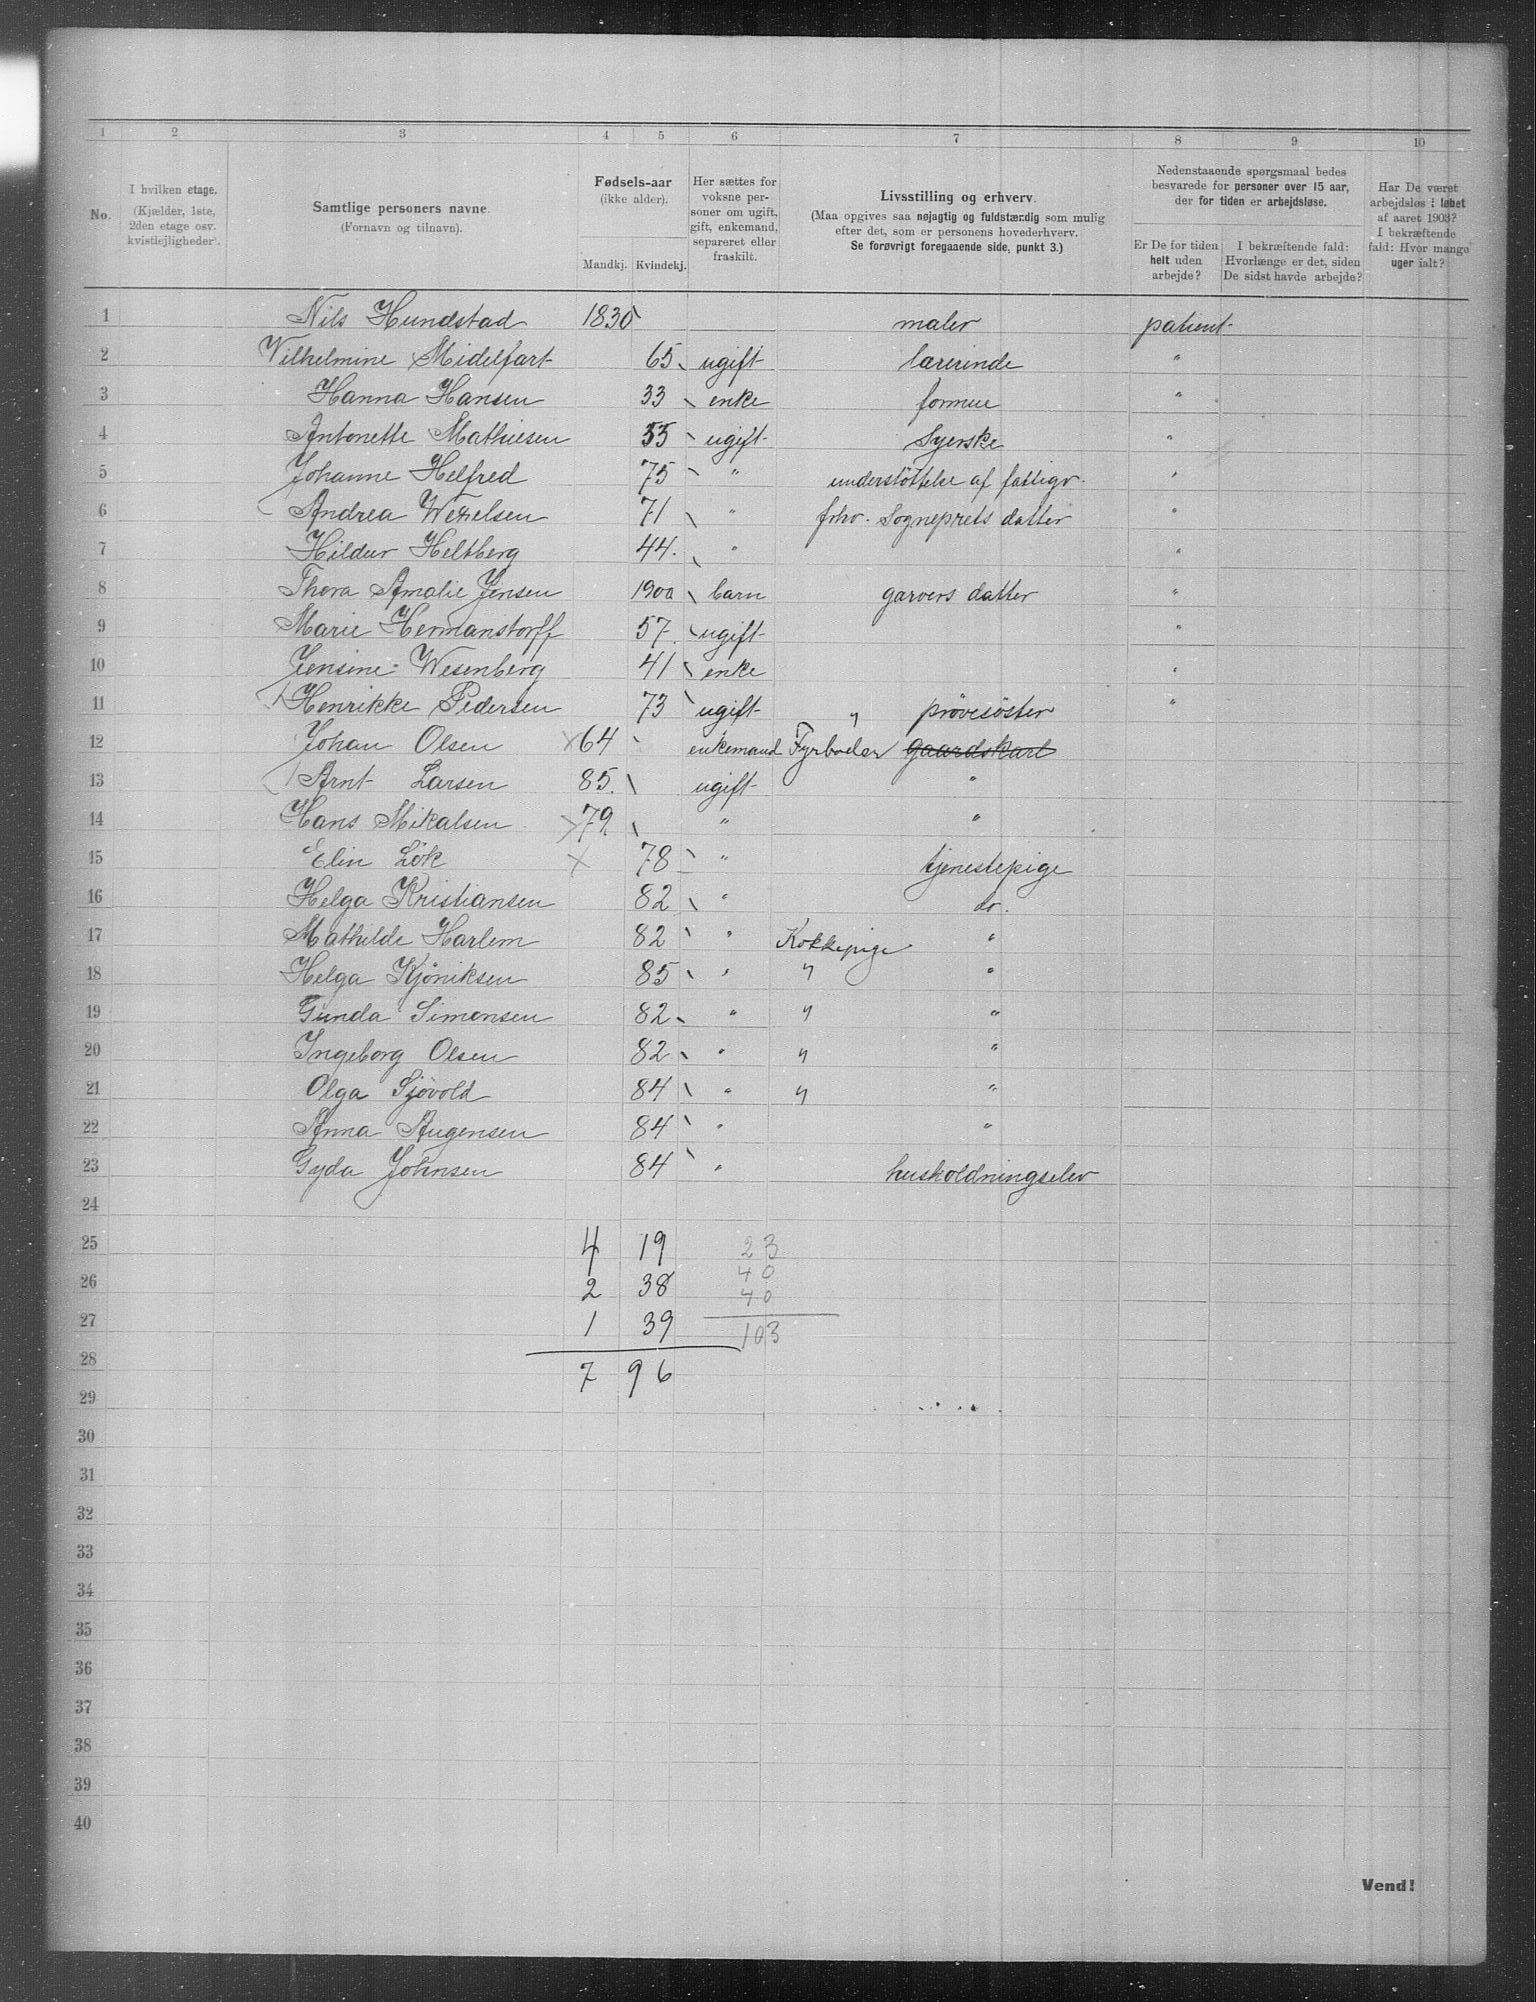 1 2 3 4 5 6 7 8 9 10
No.
I hvilken etage.
(Kjælder, 1ste,
2den etage osv.
kvistlejligheder).
Samtlige personers navne.
(Fornavn og tilnavn).
Fødsels-aar
(ikke alder).
Mandkj. Kvindekj.
Her sættes for
voksne per-
soner om ugift,
gift, enkemand,
separeret eller
fraskilt.
Livsstilling og erhverv.
(Maa opgives saa nøjagtig og fuldstændig som mulig
efter det, som er personens hovederhverv.
Se forøvrigt foregaaende side, punkt 3.)
Nedenstaaende spørgsmaal bedes
besvarede for personer over 15 aar,
der for tiden er arbejdsløse.
Er De for tiden
helt uden
arbejde?
I bekræftende fald:
Hvorlænge er det, siden
De sidst havde arbejde?
Har De været
arbejdsløs i løbet
af aaret 1903?
I bekræftende
fald: Hvor mange
uger ialt?
1 Nils Hundstad 1830 maler patient
2 Vilhelmine Midelfart 65 ugift lærerinde "
3 Hanna Hansen 33 enke formue "
4 Antonette Mathiesen 55 ugift Syerske "
5 Johanne Helfred 75 " understöttelse af fattigv. "
6 Andrea Wexelsen 71 " fhv. Sogneprets datter "
7 Hildur Heltberg 44. " "
8 Thora Amalie Jensen 1900 barn garvers datter "
9 Marie Hermanstorff 57. ugift "
10 Jensine Wesenberg 41 enke "
11 Henrikke Pedersen 73 ugift " prövesöster "
12 Johan Olsen × 64 enkemand Fyrböder gaardskarl
13 Arnt Larsen 85. ugift "
14 Hans Mikalsen × 79. " "
15 Elin Lök × 78 " tjenestepige
16 Helga Kristiansen 82 " do.
17 Mathilde Harlem 82 " Kokkepige "
18 Helga Kjöniksen 85 " " "
19 Gunda Simonsen 82 " " "
20 Ingeborg Olsen 82 " " "
21 Olga Sjövold 84 " " "
22 Anna Augensen 84 " "
23 Gyda Johnsen 84 " husholdningselev
24
25 4 19 23
26 2 38 40
40
27 1 39 103
28 7 96
29
30
31
32
33
34
35
36
37
38
39
40
Vend!